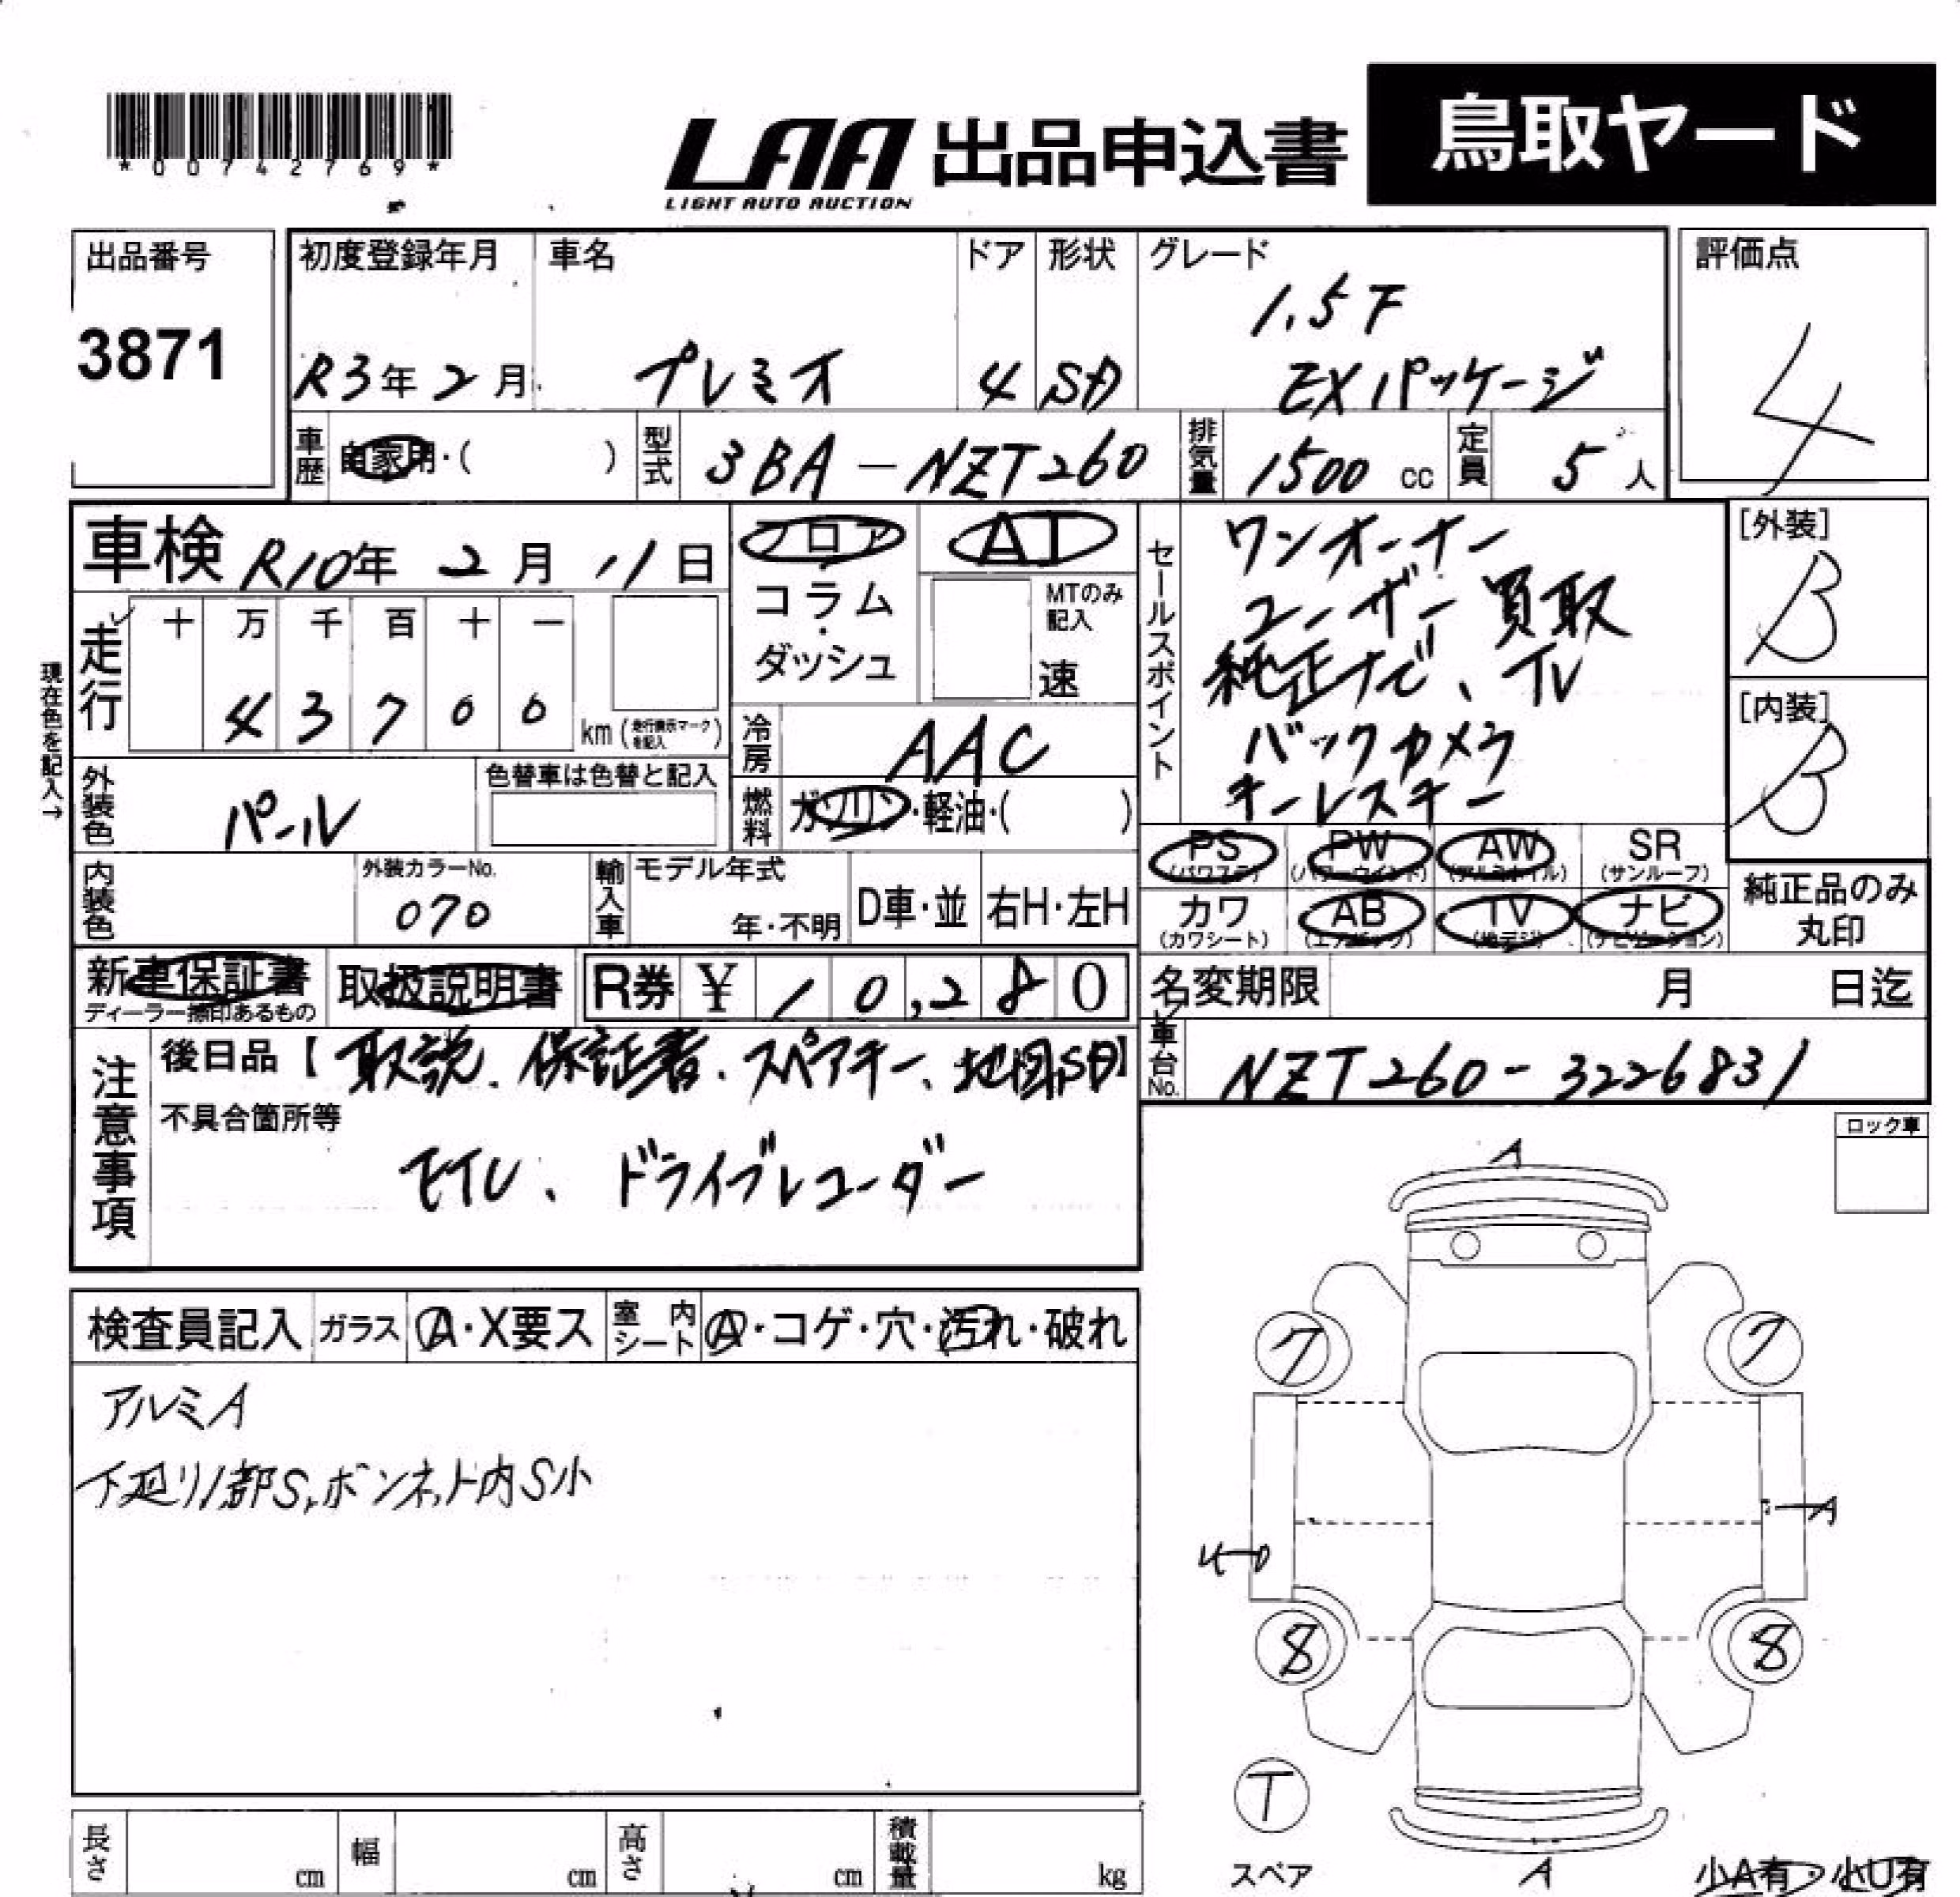 *00742769*
LAA 出品申込書 鳥取ヤード
LIGHT AUTO AUCTION
出品番号
3871
初度登録年月
R3年 2月
車名
プレミオ
ドア
4
形状
SD
グレード
1.5F
EXパッケージ
評価点
4
車歴 自家用・( )
型式 3BA-NZT260
排気量 1500 cc
定員 5 人
車検 R10年 2月 11日
フロア
コラム
・
ダッシュ
AT
MTのみ
記入
速
セールスポイント
ワンオーナー
ユーザー買取
純正ナビ、TV
バックカメラ
キーレスキー
[外装]
B
[内装]
B
現在色を記入→
走行
十 万 千 百 十 一
4 3 7 0 0
km (走行表示マークを記入)
冷房 AAC
外装色 パール
色替車は色替と記入
燃料 ガソリン・軽油・( )
PS (パワステ)
PW (パワーウインド)
AW (アルミホイル)
SR (サンルーフ)
カワ (カワシート)
AB (エアバッグ)
TV (地デジ)
ナビ (ナビゲーション)
純正品のみ
丸印
内装色
外装カラーNo.
070
輸入車
モデル年式
年・不明
D車・並
右H・左H
新車保証書
ディーラー捺印あるもの
取扱説明書
R券 ¥ 10,280
名変期限 月 日迄
車台No. NZT260-3226831
注意事項
後日品【取説、保証書、スペアキー、地図SD】
不具合箇所等
ETC、ドライブレコーダー
ロック車
検査員記入 ガラス A・X要ス 室内シート A・コゲ・穴・汚れ・破れ
アルミA
下廻り1部S,ボンネット内S小
A
7 7
A
8 8
T
スペア
A
小A有・小U有
長さ cm
幅 cm
高さ cm
積載量 kg